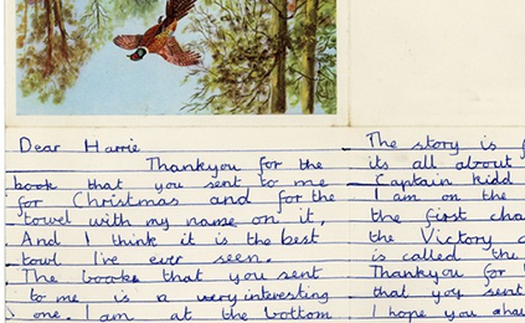 Dear Harrie
Thankyou for the
book that you sent to me
for Christmas and for the
towel with my name on it,
And I think it is the best
towl I've ever seen.
The books that you sent
to me is a very interesting
one. I am at the bottom
The story is
its all about
Captain kidd
I am on the
the first cha
the Victory
is called the
Thankyou for
that yoy sent
I hope you